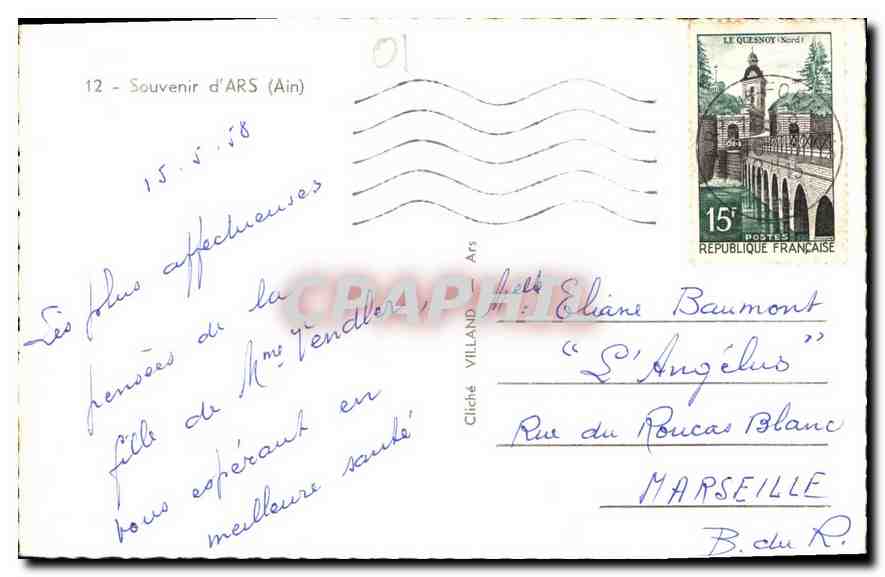 01
12 - Souvenir d'ARS (Ain)
15.5.58
Les plus affectueuses
pensées de la
fille de Mme Vendler,
vous espérant en
meilleure santé
Cliché VILLAND — Ars
LE QUESNOY (Nord)
15F
POSTES
REPUBLIQUE FRANÇAISE
Melle Eliane Baumont
"L'Angélus"
Rue du Roucas Blanc
MARSEILLE
B. du R.
CPAPHIL